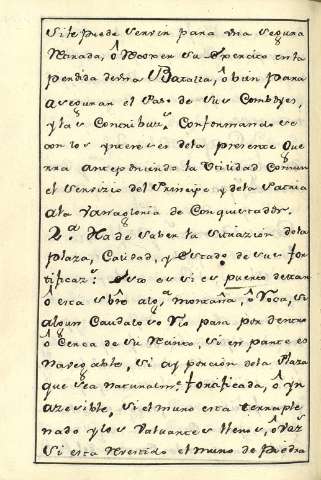 Si le puede servir para una segura
Retirada, ô no poner su Exercito en la
perdida de una Batalla, ô bien para
asegurar el Paso de sus Comboyes,
y las Contribuz.s Conformandose
con los yntereses de la presente Gue
rra anteponiendo la Utilidad Comun
el Servizio del Principe y de la Patria
a la vanagloria de Conquistador.
2.a Ha de saber la Situazion de la
Plaza, Calidad, y Estado de sus for
tificaz.s si es puerto de mar
ô esta sobre alg.a montaña, ô Roca, si
algun Caudaloso Rio pasa por dentro
ô Cerca de su Recinto, si en parte es
navegable, si ay porcion de la Plaza
que sea naturalm.e fortificada, ô yn
azesible, si el muro esta terraple
nado y los Valuartes llenos, ô vaz.s
si esta Revestido el muro de Piedra